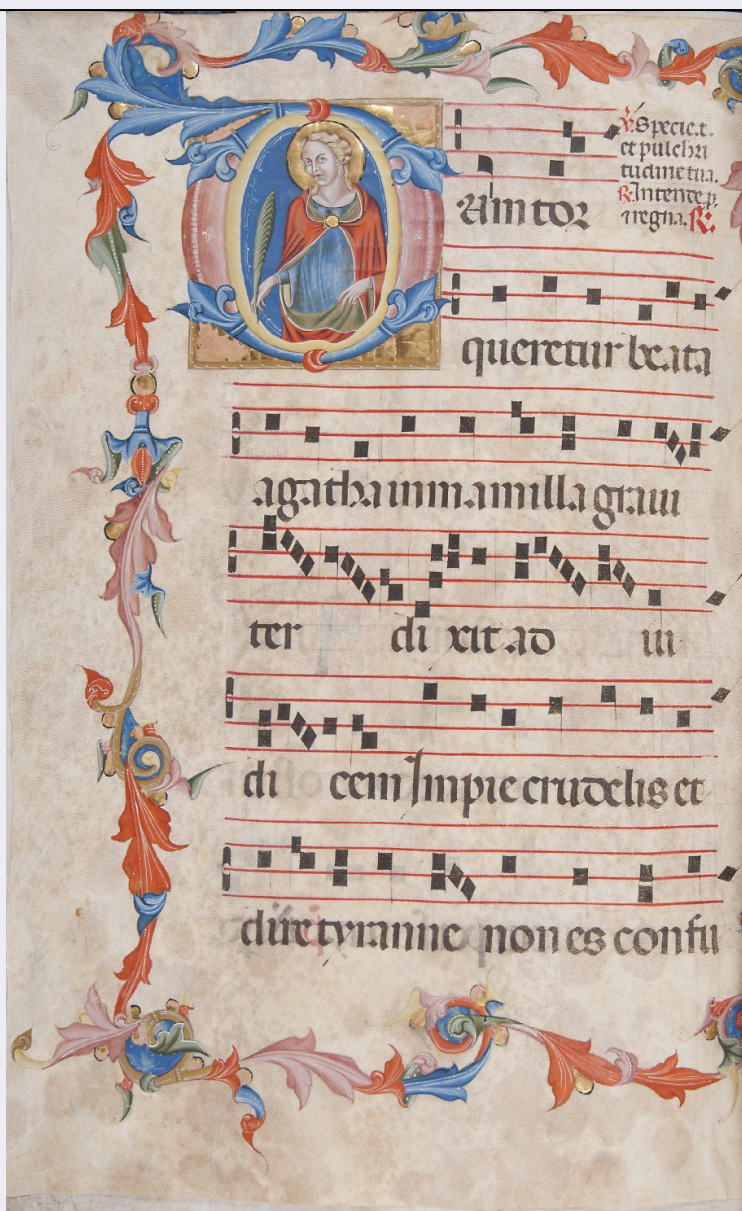 Dum tor
℣. Specie. t.
et pulchri
tudine tua.
℟. Intende. p.
⁊ regna. ℟.
queretur beata
agatha in mamilla graui
ter di xit ad iu
di cem Impie crudelis et
dire tyranne non es confu